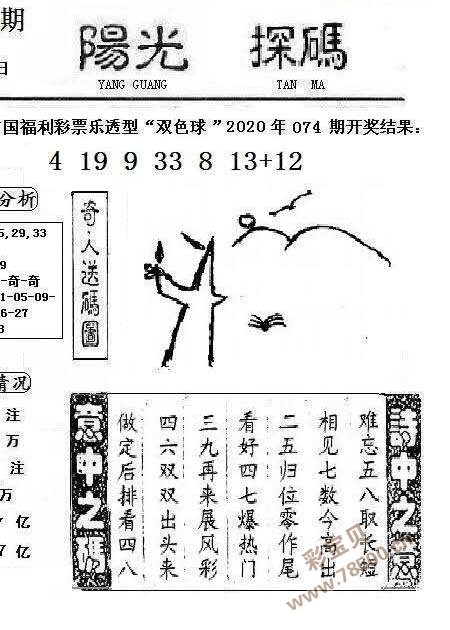 期
日
陽光 探碼
YANG GUANG TAN MA
国福利彩票乐透型“双色球”2020年074期开奖结果：
4 19 9 33 8 13+12
分析
5,29,33
9
-奇-奇
1-05-09-
6-27
3
奇人送碼圖
情况
注
万
注
万
亿
7 亿
詩中之言
难忘五八取长短
相见七数今高出
二五归位零作尾
看好四七爆热门
三九再来展风彩
四六双双出头来
做定后排看四八
意中之碼
彩宝贝
www.78500.cn